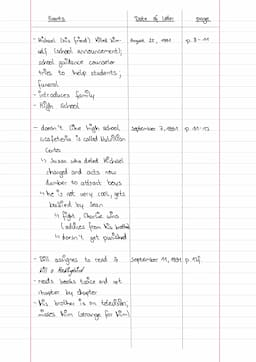 Events Date of letter page
- Michael (his friend) killed him- August 25, 1991 p. 3-11
self (school announcement);
school guidance counselor
tries to help students;
funeral
- introduces family
- High school
- doesn't like high school September 7, 1991 p. 11-13
↳ Susan who dated Michael
changed and acts now
dumber to attract boys
↳ he is not very cool, gets
bullied by Sean
↳ fight, Charlie wins
(advices from his brother)
↳ doesn't get punished
- Bill assignes to read September 11, 1991
kill a Mockingbird
- reads books twice and not
chapter by chapter
- his brother is on television,
misses him (strange for him)